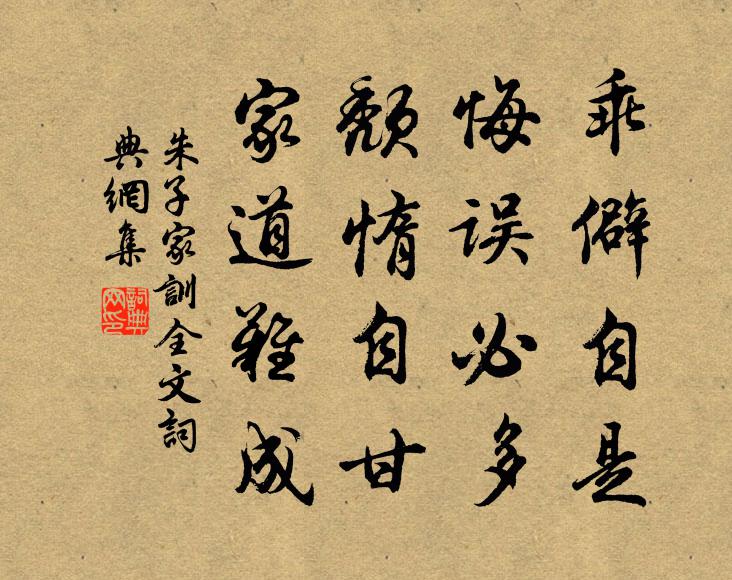 乖僻自是
悔误必多
颓惰自甘
家道難成
朱子家訓全文詞
典網集
詞典网印